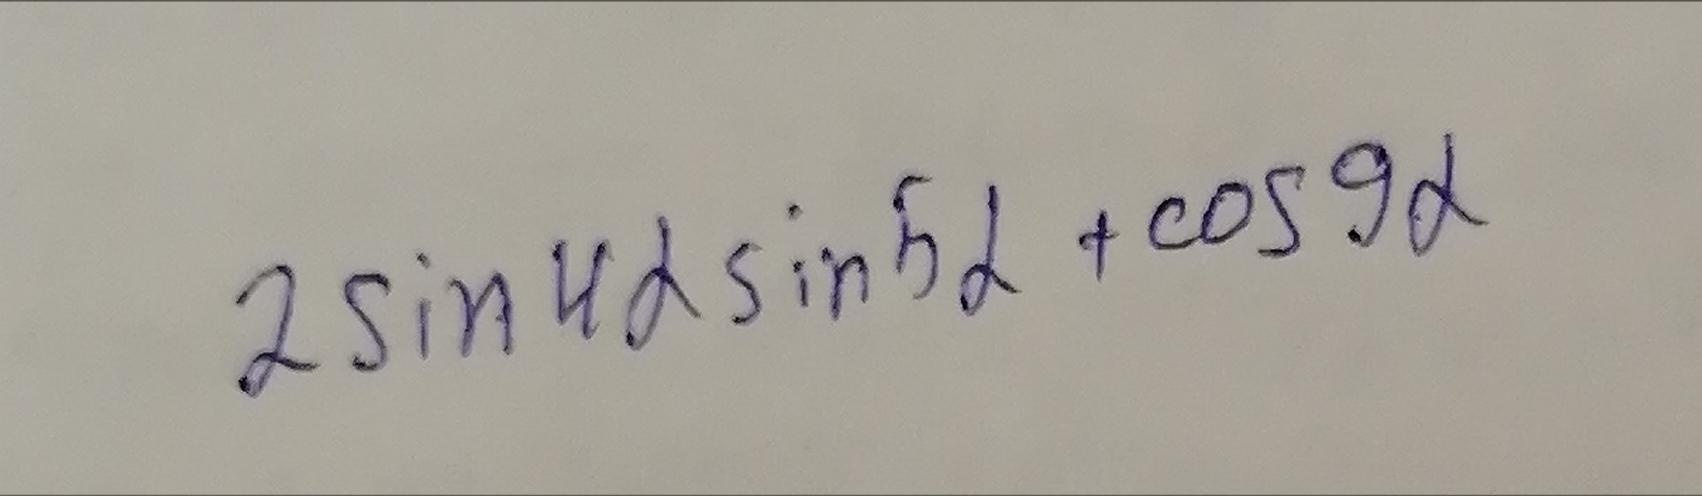 2 sin 4α sin 5α + cos 9α